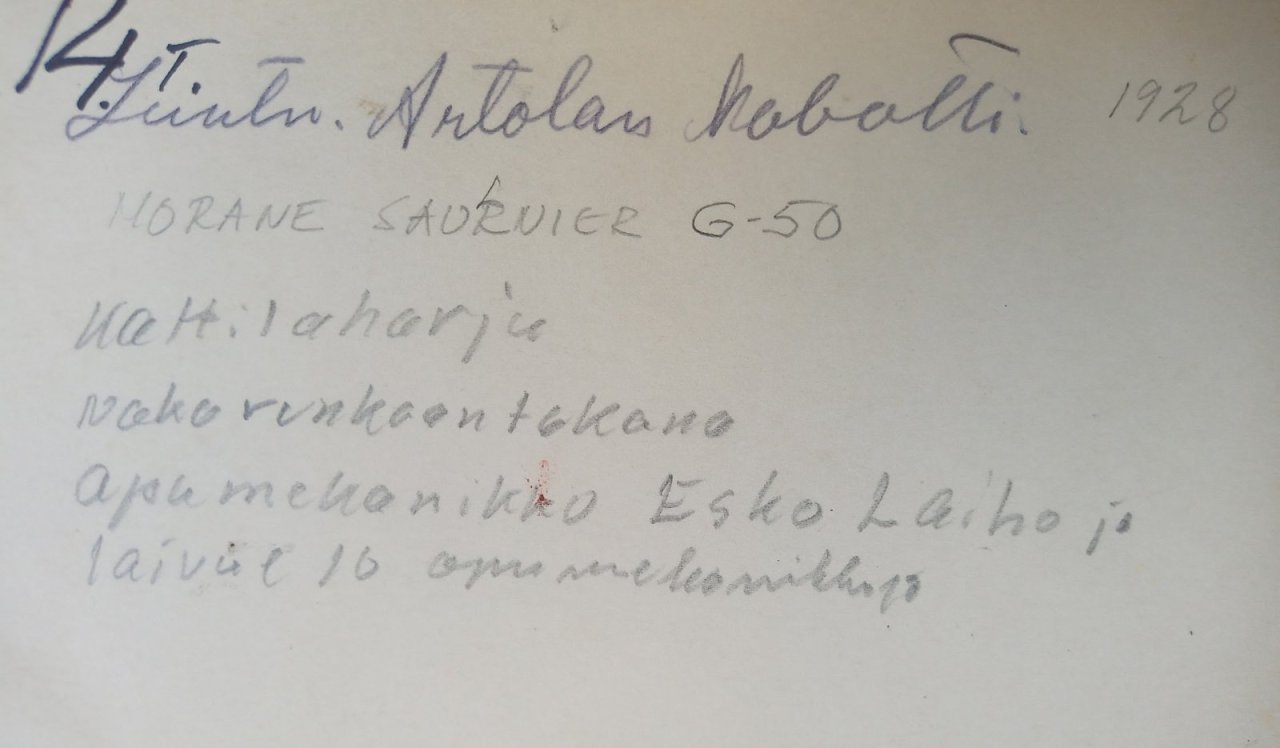 R4. T.
Luutn. Artolan Mobotti. 1928
MORANE SAURNIER G-50
Kattilaharju
vakorunkoontakana
apumekanikko Esko Laiho ja
laivue 10 apumekanikkoja